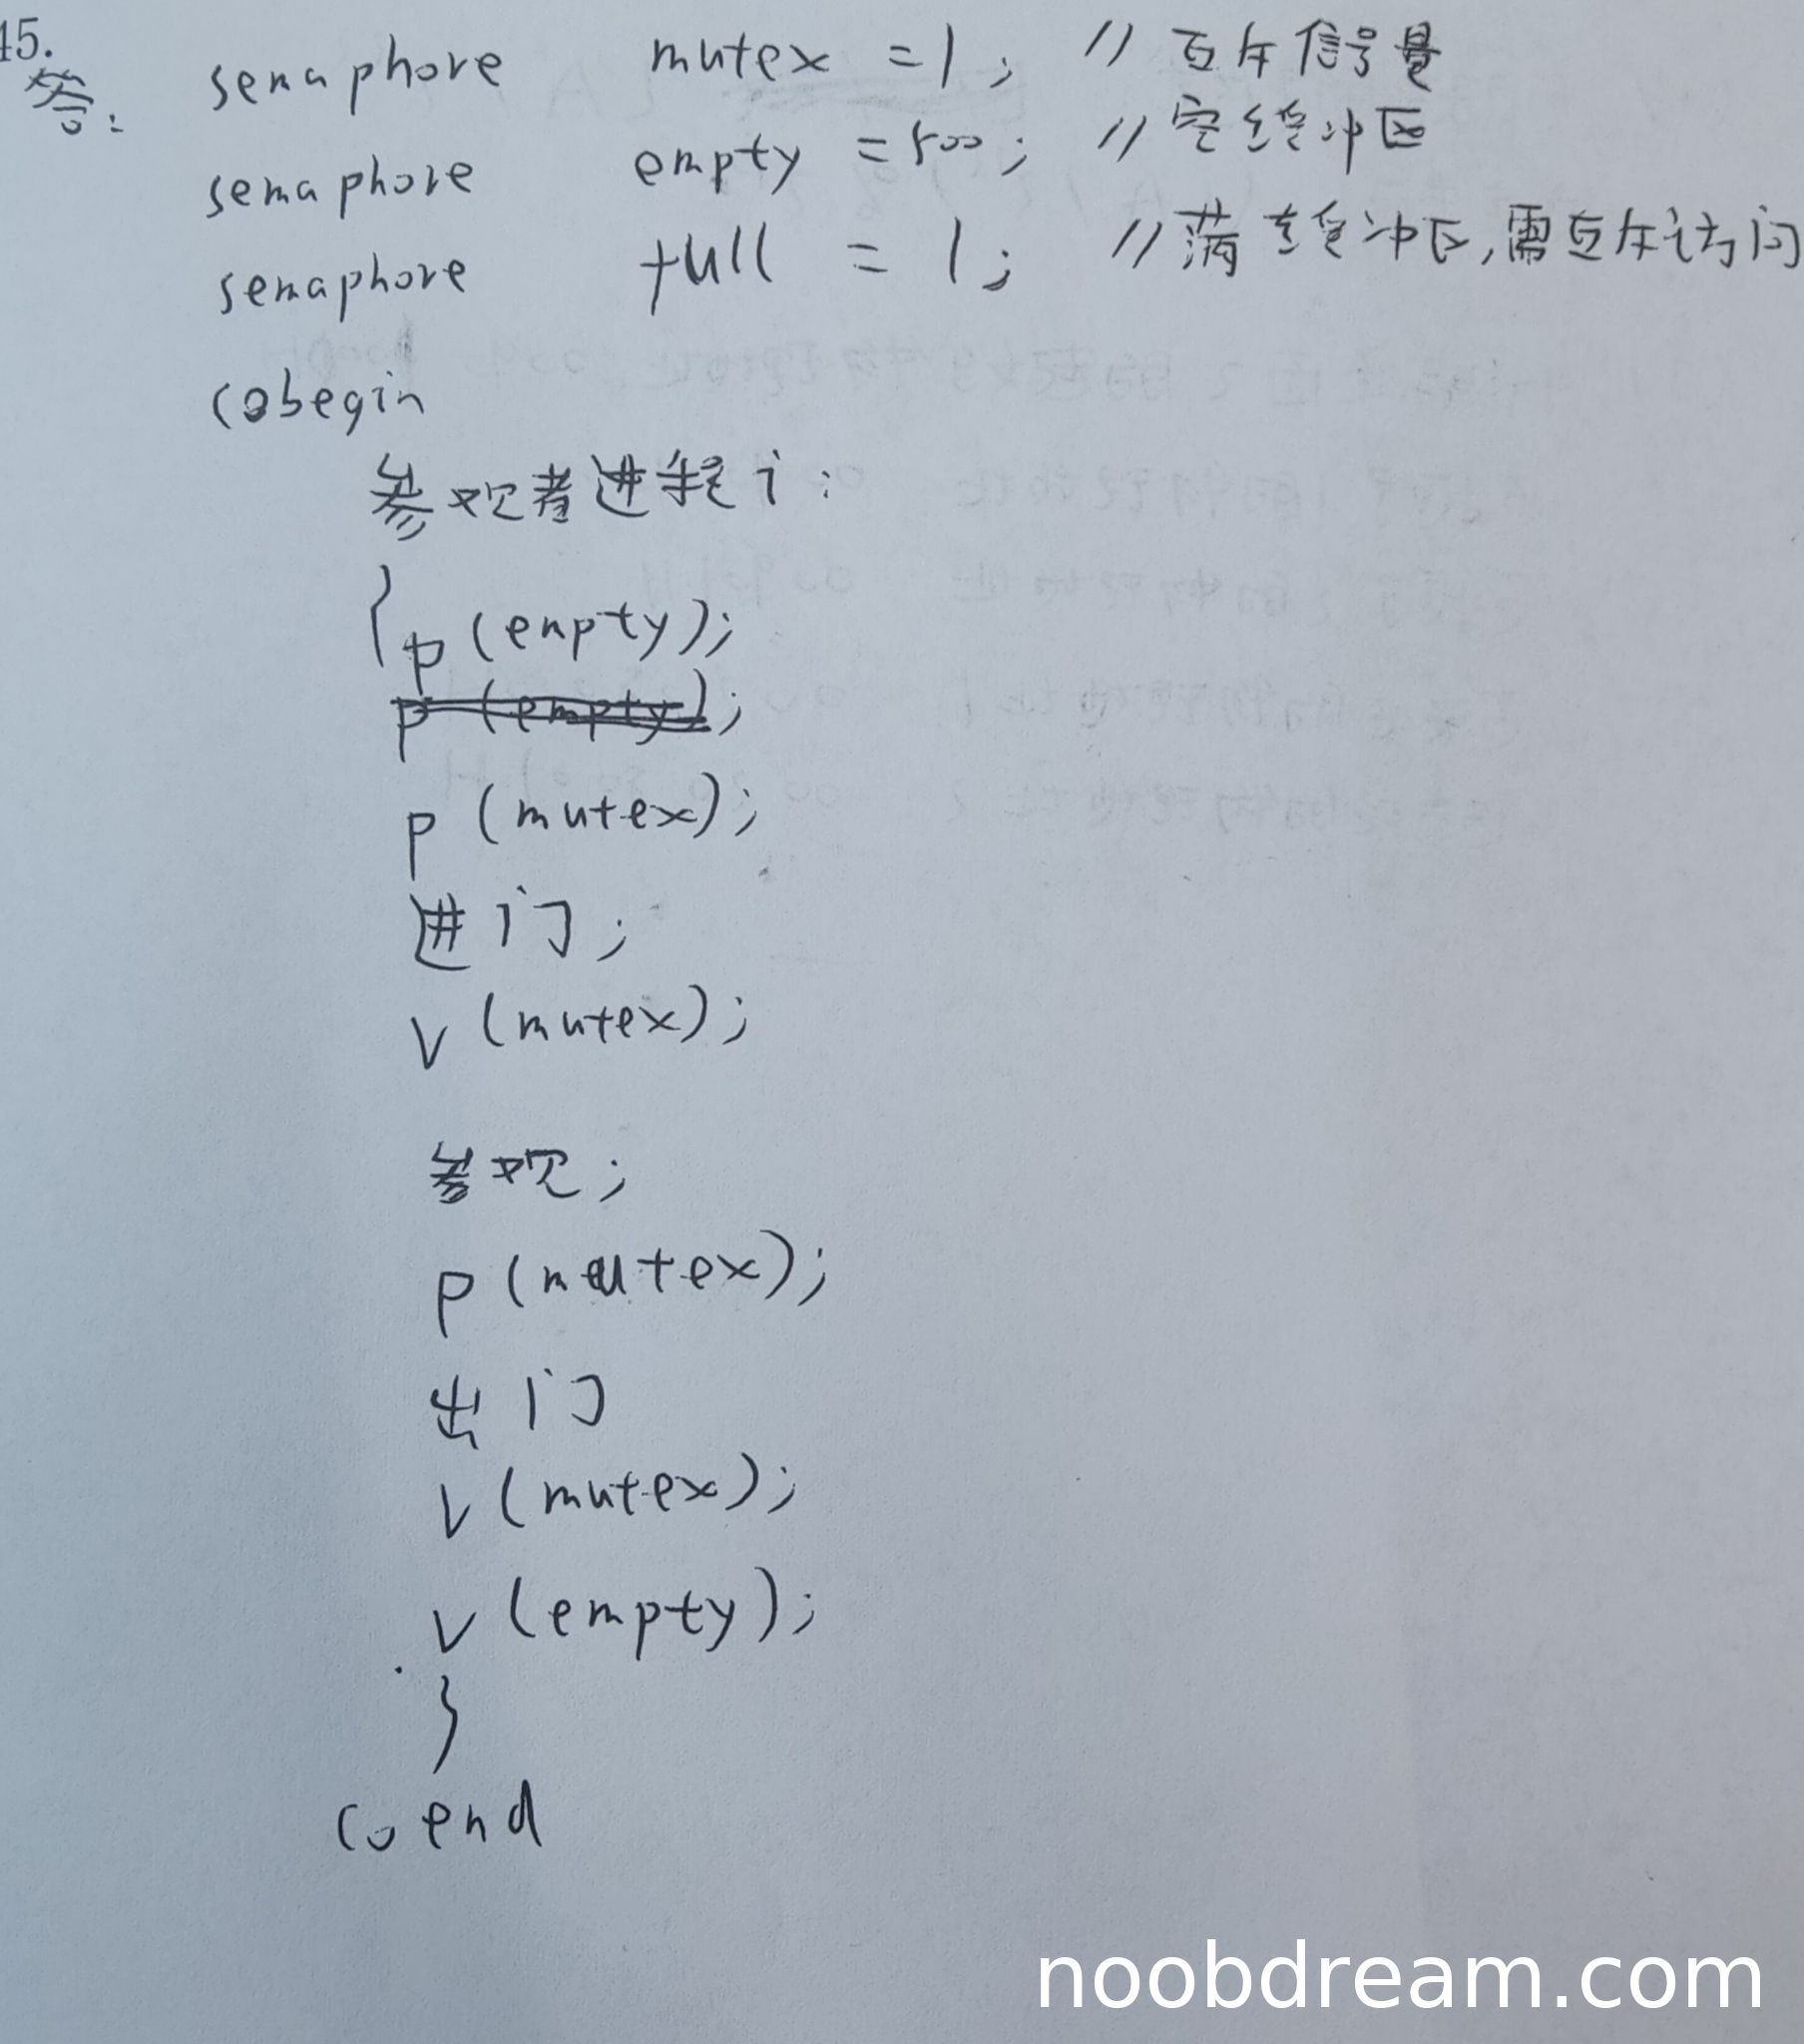 45.
答: semaphore mutex = 1; // 互斥信号量
semaphore empty = 500; // 空缓冲区
semaphore full = 1; // 满缓冲区,需互斥访问
cobegin
参观者进程 i:
{ p (empty);
p (empty);
p (mutex);
进门;
v (mutex);
参观;
p (mutex);
出门
v (mutex);
v (empty);
}
coend
noobdream.com